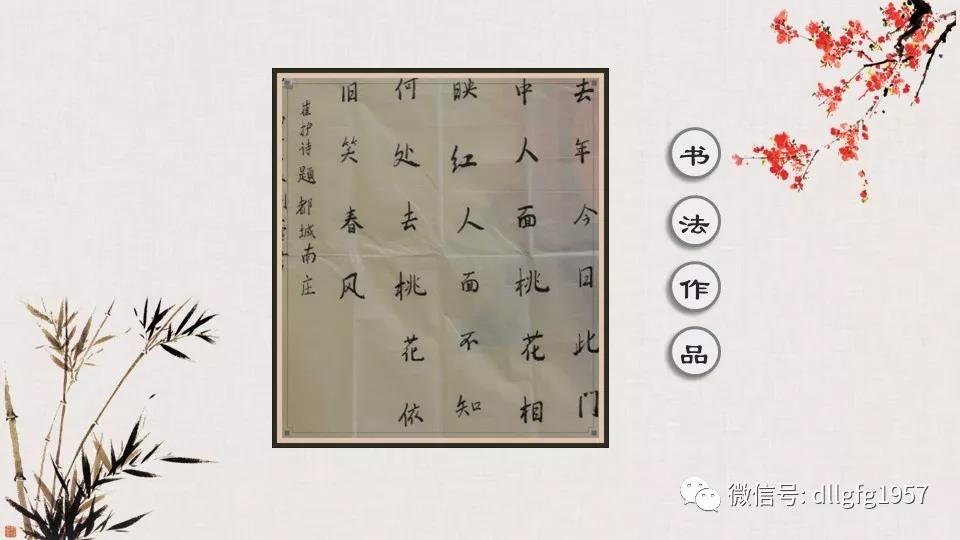 去年今日此门
中人面桃花相
映红人面不知
何处去桃花依
旧笑春风
崔护诗题都城南庄
书法作品
微信号: dllgfg1957